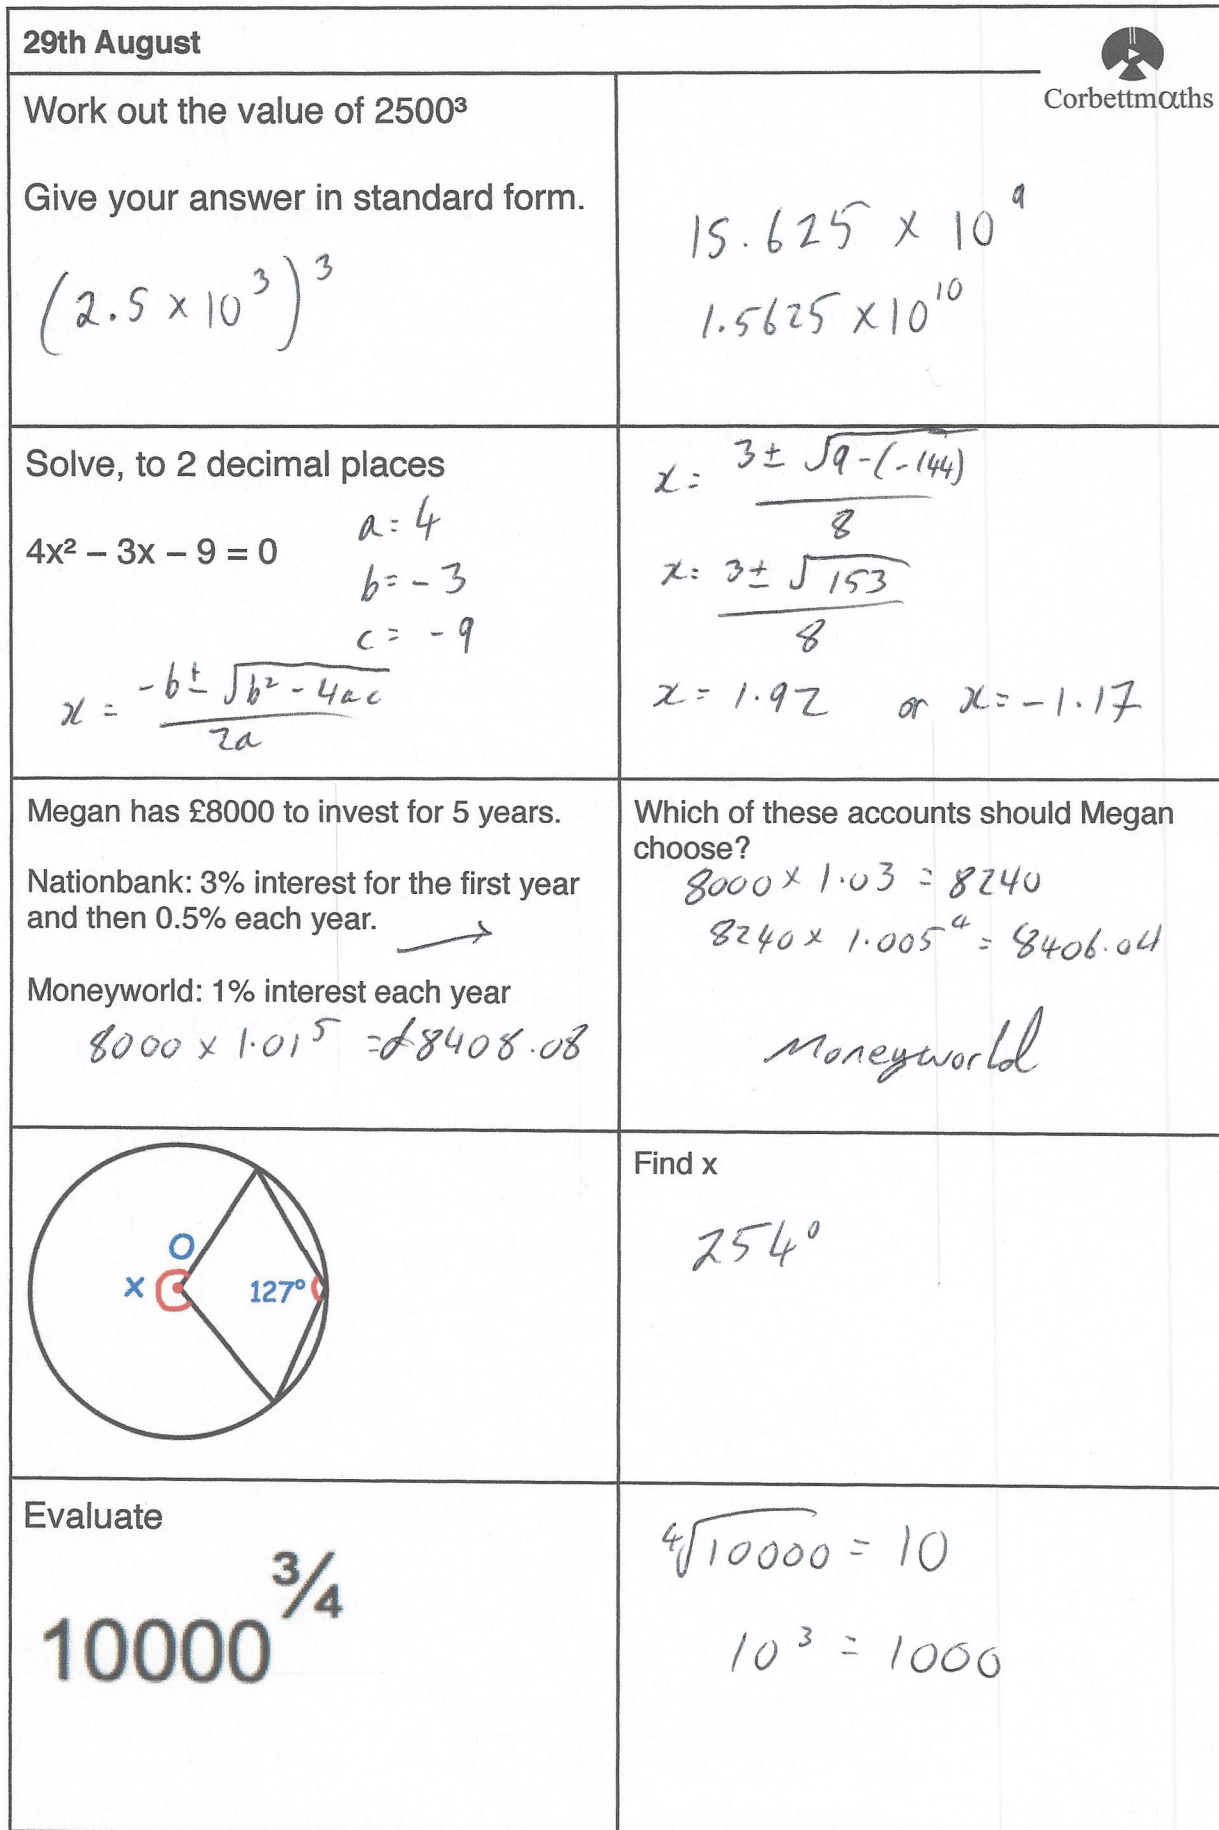 29th August
Corbettmαths
Work out the value of 2500³
Give your answer in standard form.
(2.5 × 10³)³
15.625 × 10⁹
1.5625 × 10¹⁰
Solve, to 2 decimal places
4x² – 3x – 9 = 0
a = 4
b = - 3
c = - 9
x = (-b ± √(b² - 4ac)) / 2a
x = (3 ± √(9 - (-144))) / 8
x = (3 ± √153) / 8
x = 1.92 or x = -1.17
Megan has £8000 to invest for 5 years.
Nationbank: 3% interest for the first year
and then 0.5% each year. →
Moneyworld: 1% interest each year
8000 × 1.01⁵ = £8408.08
Which of these accounts should Megan
choose?
8000 × 1.03 = 8240
8240 × 1.005⁴ = 8406.04
Moneyworld
O
x 127°
Find x
254°
Evaluate
10000^¾
⁴√10000 = 10
10³ = 1000